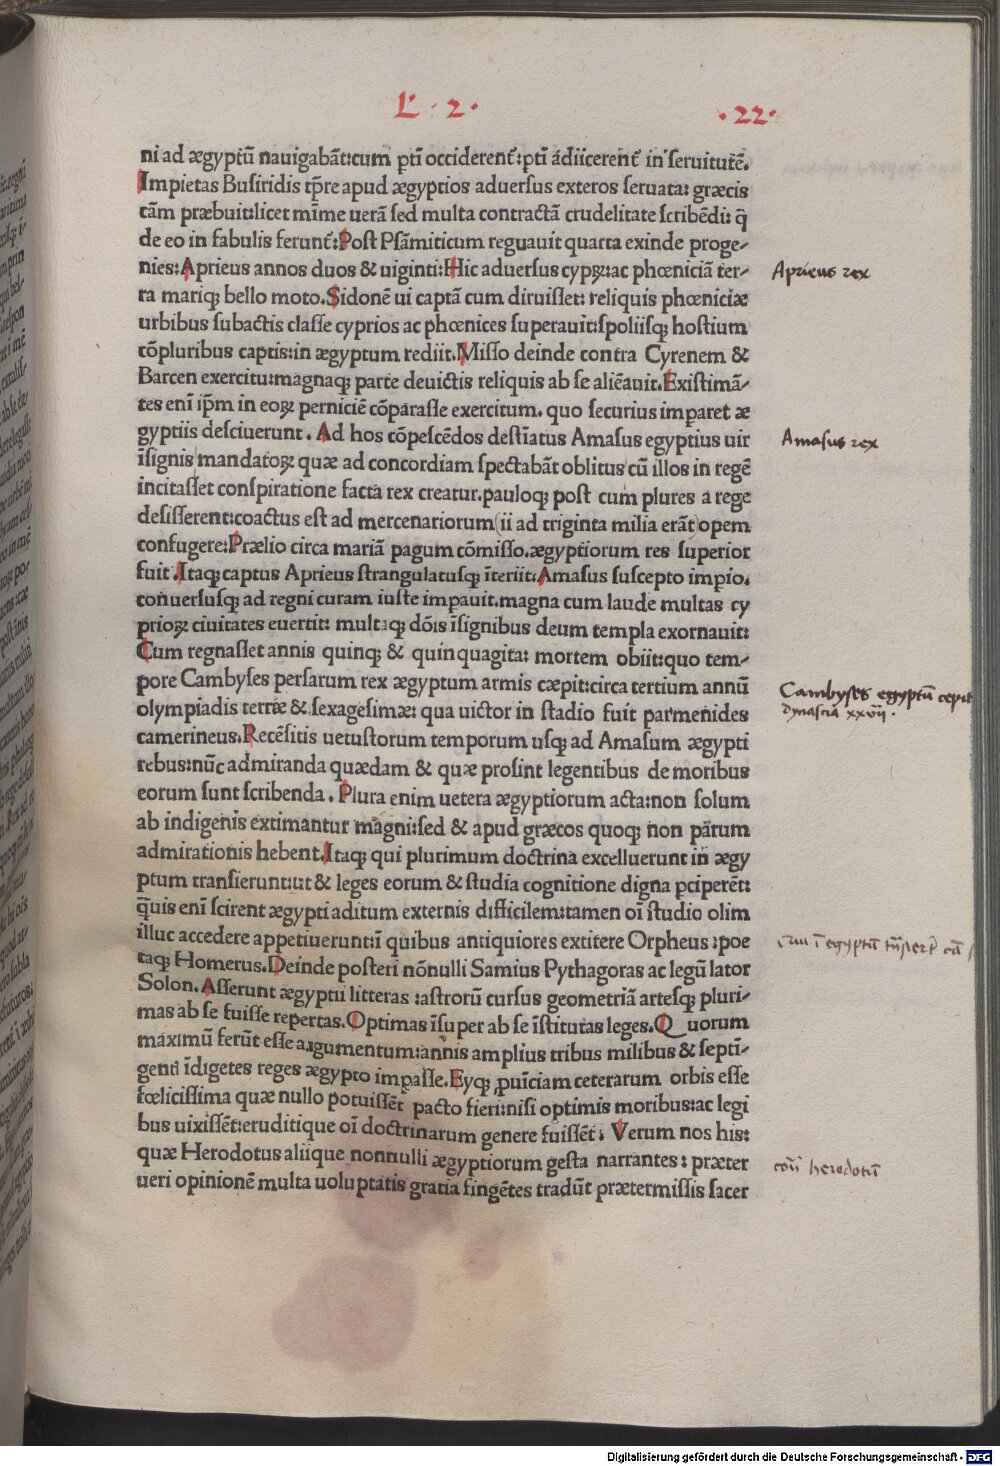 L · 2 ·
· 22 ·
ni ad ægyptũ nauigabãt:cum ptĩ occiderent᷑:ptĩ adiicerent᷑ in seruitutẽ.
Impietas Busiridis tp̃re apud ægyptios aduersus exteros seruata: græcis
cãm præbuit:licet mĩme uerã sed multa contractã crudelitate scribẽdi: q̃
de eo in fabulis ferunt᷑:Post Psãmiticum reguauit quarta exinde proge⸗
nies:Aprieus annos duos & uiginti:Hic aduersus cypꝝ:ac phœniciã ter⸗
ra mariqꝫ bello moto.Sidonẽ ui captã cum diruisset: reliquis phœniciæ
urbibus subactis classe cyprios ac phœnices superauit:spoliisqꝫ hostium
cõpluribus captis:in ægyptum rediit.Misso deinde contra Cyrenem &
Barcen exercitu:magnaqꝫ parte deuictis reliquis ab se aliẽauit.Existimã⸗
tes enĩ ip̃m in eoꝝ perniciẽ cõparasse exercitum. quo securius imparet æ
gyptiis desciuerunt. Ad hos cõpescẽdos destĩatus Amasus egyptius uir
ĩsignis mandatoꝝ quæ ad concordiam spectabãt oblitus cũ illos in regẽ
incitasset conspiratione facta rex creatur.pauloqꝫ post cum plures a rege
desisserent:coactus est ad mercenariorum(ii ad triginta milia erãt)opem
confugere:Prælio circa mariã pagum cõmisso.ægyptiorum res superior
fuit.Itaqꝫ captus Aprieus strangulatusqꝫ ĩteriit:Amasus suscepto impio.
conuersusqꝫ ad regni curam iuste impauit.magna cum laude multas cy
prioꝝ ciuitates euertit: multaqꝫ dõis ĩsignibus deum templa exornauit:
Cum regnasset annis quinqꝫ & quinquagita: mortem obiit:quo tem⸗
pore Cambyses persarum rex ægyptum armis cæpit:circa tertium annũ
olympiadis terriæ & sexagesimæ: qua uictor in stadio fuit parmenides
camerineus.Recẽsitis uetustorum temporum usqꝫ ad Amasum ægypti
rebus:nũc admiranda quædam & quæ prosint legentibus de moribus
eorum sunt scribenda. Plura enim uetera ægyptiorum acta:non solum
ab indigenis extimantur magni:sed & apud græcos quoqꝫ non parum
admirationis hebent.Itaqꝫ qui plurimum doctrina excelluerunt in ægy
ptum transierunt:ut & leges eorum & studia cognitione digna pciperẽt:
q̃uis enĩ scirent ægypti aditum externis difficilem:tamen oĩ studio olim
illuc accedere appetiuerunt:ĩ quibus antiquiores extitere Orpheus :poe
taqꝫ Homerus.Deinde posteri nõnulli Samius Pythagoras ac legũ lator
Solon. Asserunt ægyptii litteras :astrorũ cursus geometriã artesqꝫ pluri⸗
mas ab se fuisse repertas.Optimas ĩsuper ab se ĩstitutas leges.Quorum
maximũ ferũt esse argumentum:annis amplius tribus milibus & septĩ⸗
genti ĩdigetes reges ægypto impasse.Eyqꝫ puĩciam ceterarum orbis esse
fœlicissima quæ nullo potuissẽt pacto fieri:nisi optimis moribus:ac legi
bus uixissẽt:eruditique oĩ doctrinarum genere fuissẽt: Verum nos his:
quæ Herodotus aliique nonnulli ægyptiorum gesta narrantes: præter
ueri opinionẽ multa uoluptatis gratia fingẽtes tradũt prætermissis sacer
Aprieus rex
Amasus rex
Cambyses egyptũ cepit
dynascia xxvij.
herodotũ
Digitalisierung gefördert durch die Deutsche Forschungsgemeinschaft - DFG